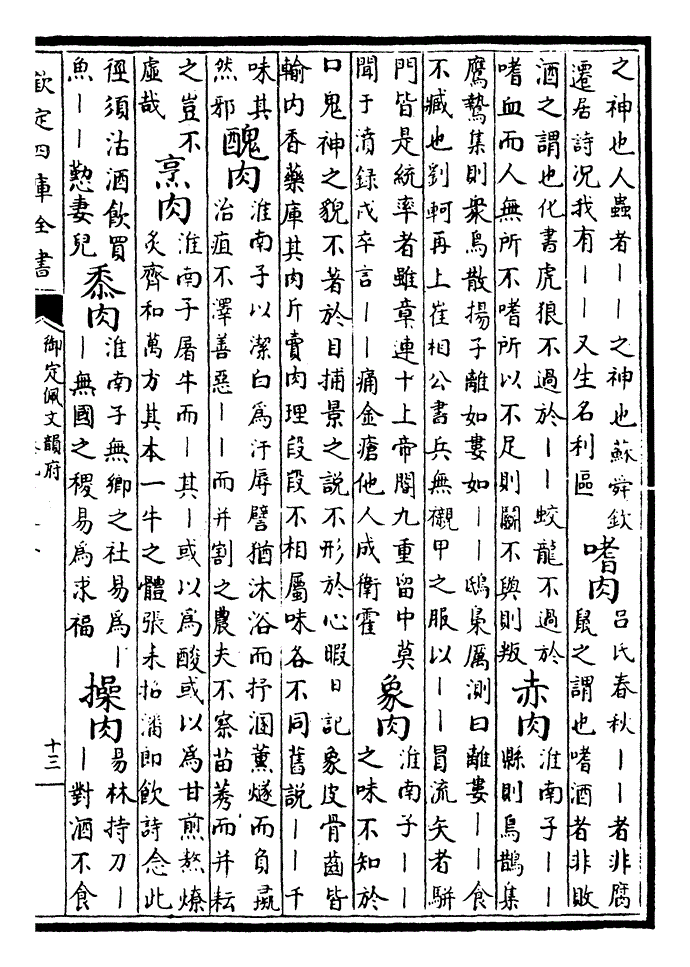 之神也人蟲者丨丨之神也蘇舜欽
遷居詩况我有丨丨又生名利區
嗜肉
吕氏春秋丨丨者非腐
鼠之謂也嗜酒者非敗
酒之謂也化書虎狼不過於丨丨蛟龍不過於
嗜血而人無所不嗜所以不足則鬭不與則叛
赤肉
淮南子丨丨
縣則烏鵲集
鷹鷙集則衆鳥散揚子離如婁如丨丨鴟梟厲測曰離婁丨丨食
不臧也劉軻再上崔相公書兵無襯甲之服以丨丨冒流矢者駢
門皆是統率者雖章連十上帝閽九重留中莫
聞于濆錄戍卒言丨丨痛金瘡他人成衛霍
象肉
淮南子丨丨
之味不知於
口鬼神之貌不著於目捕景之説不形於心暇日記象皮骨齒皆
輸内香藥庫其肉斤賣肉理段段不相屬味各不同舊説丨丨千
味其
然邪
醜肉
淮南子以潔白為汙辱譬猶沐浴而抒溷薰燧而負彘
治疽不澤善惡丨丨而并割之農夫不察苗莠而并耘
之豈不
虛哉
烹肉
淮南子屠牛而丨其丨或以為酸或以為甘煎熬燎
炙齊和萬方其本一牛之體張耒招潘郎飲詩念此
徑須沽酒飲買
魚丨丨懃妻兒
黍肉
淮南子無鄉之社易為丨
丨無國之稷易為求福
操肉
易林持刀丨
丨對酒不食
欽定四庫全書
御定佩文韻府
十三